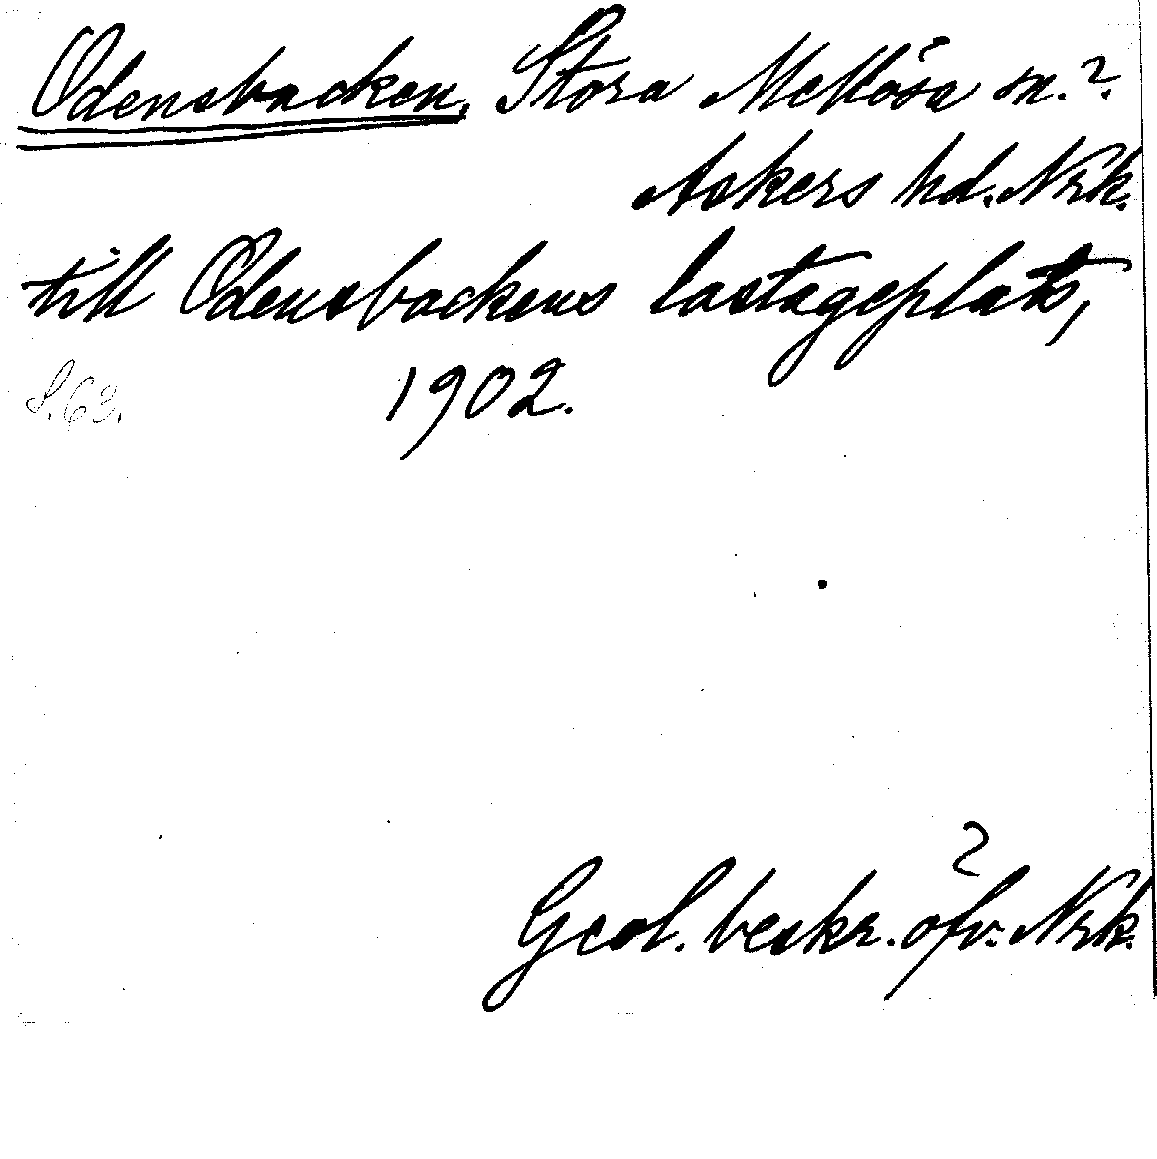 Odensbacken, Stora Mellösa sn.?
Askers hd. Nrk.
till Odensbackens lastageplats,
S. 63.
1902.
Geol. beskr. öfv. Nrk.